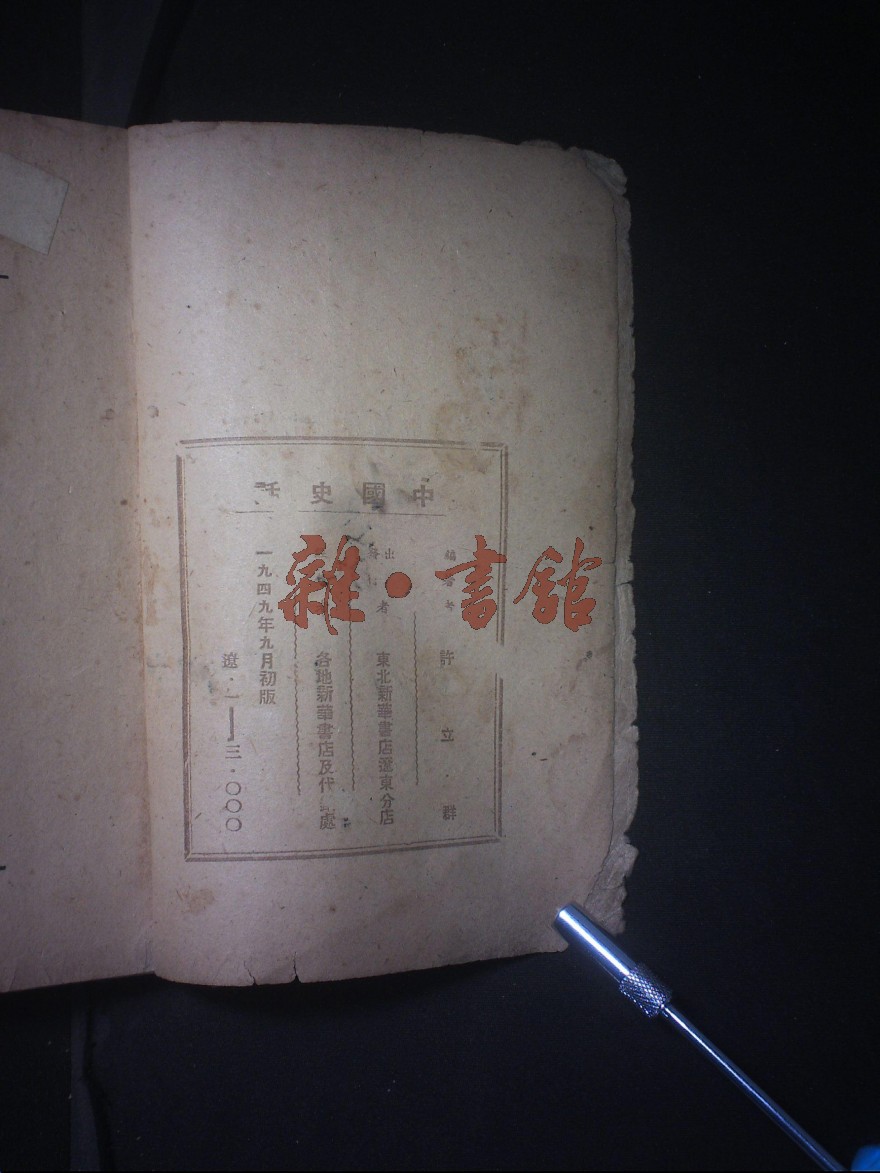 中國史話
編著者 許立群
出 者 東北新華書店遼東分店
各地新華書店及代 處
一九四九年九月初版
遼．一——三．〇〇〇
雜・書館